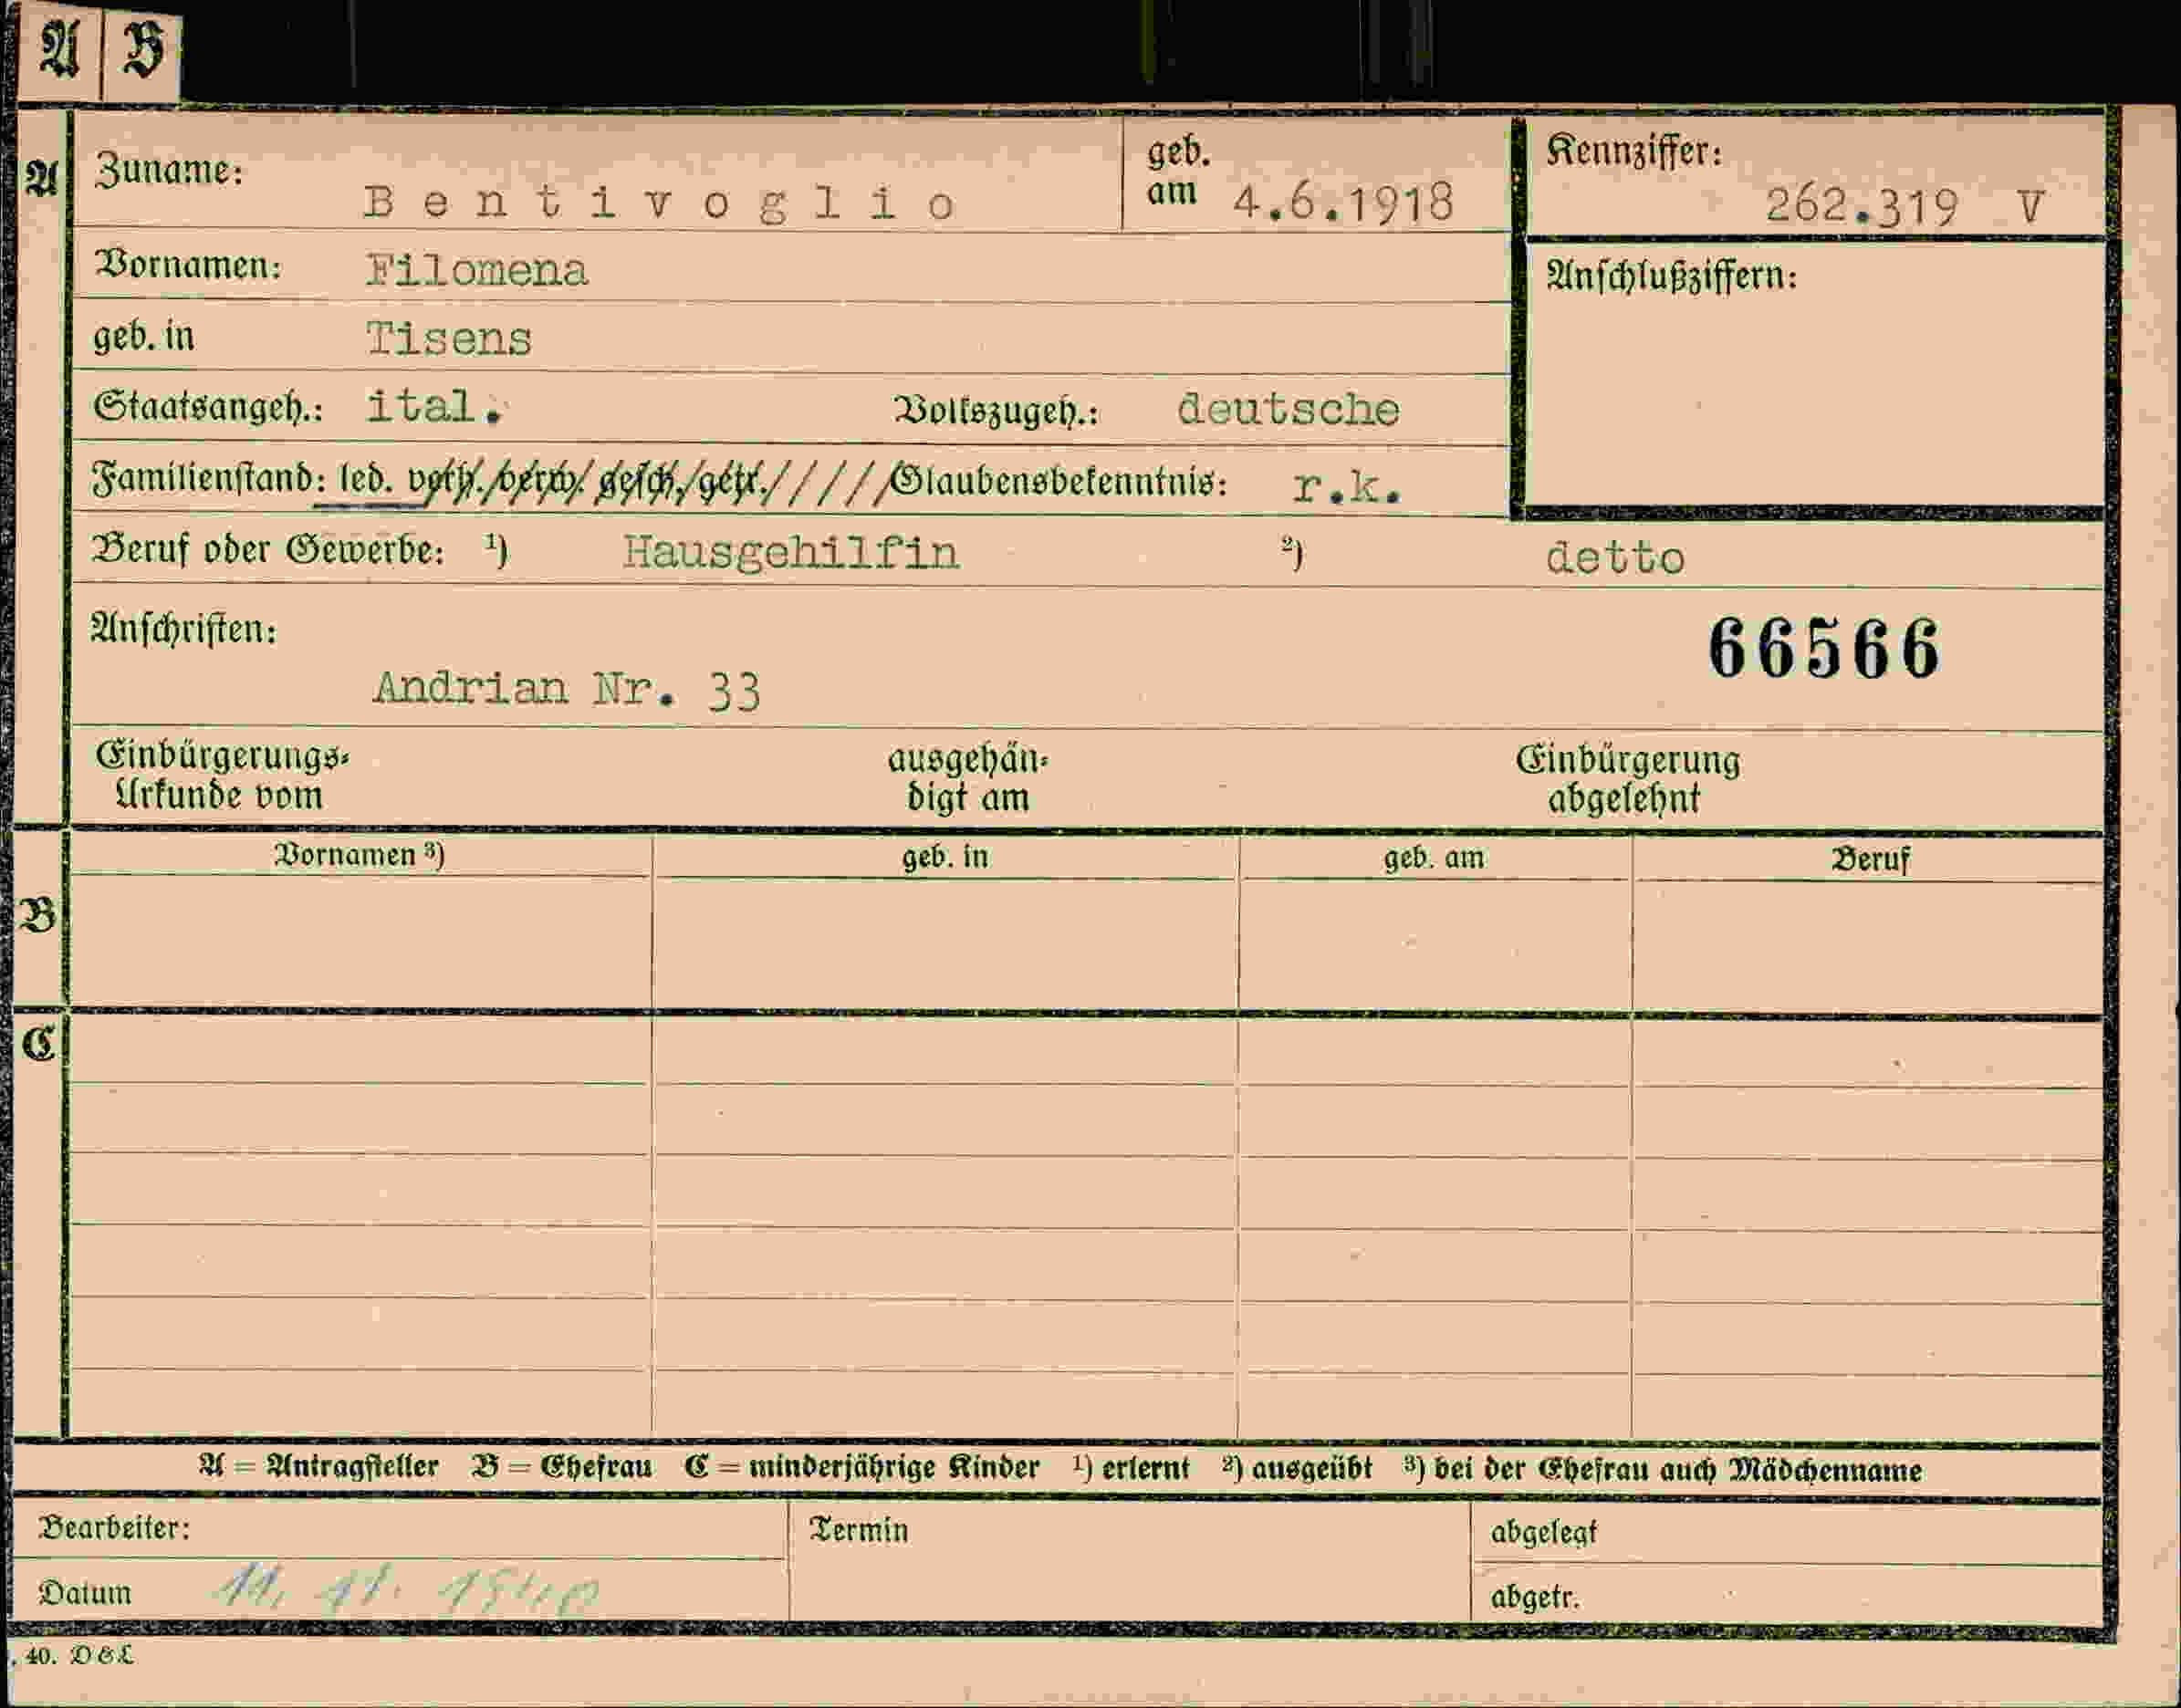 A B
A Zuname: Bentivoglio geb. am 4.6.1918 Kennziffer: 262.319 V
Vornamen: Filomena Anschlußziffern:
geb. in Tisens
Staatsangeh.: ital. Volkszugeh.: deutsche
Familienstand: led. verh./verw./gesch./getr./////Glaubensbekenntnis: r.k.
Beruf oder Gewerbe: ¹) Hausgehilfin ²) detto
Anschriften: 66566
Andrian Nr. 33
Einbürgerungs- ausgehän- Einbürgerung
Urkunde vom digt am abgelehnt
Vornamen ³) geb. in geb. am Beruf
B
C
A = Antragsteller B = Ehefrau C = minderjährige Kinder ¹) erlernt ²) ausgeübt ³) bei der Ehefrau auch Mädchenname
Bearbeiter: Termin abgelegt
Datum 11. 11. 1940 abgetr.
. 40. D & L